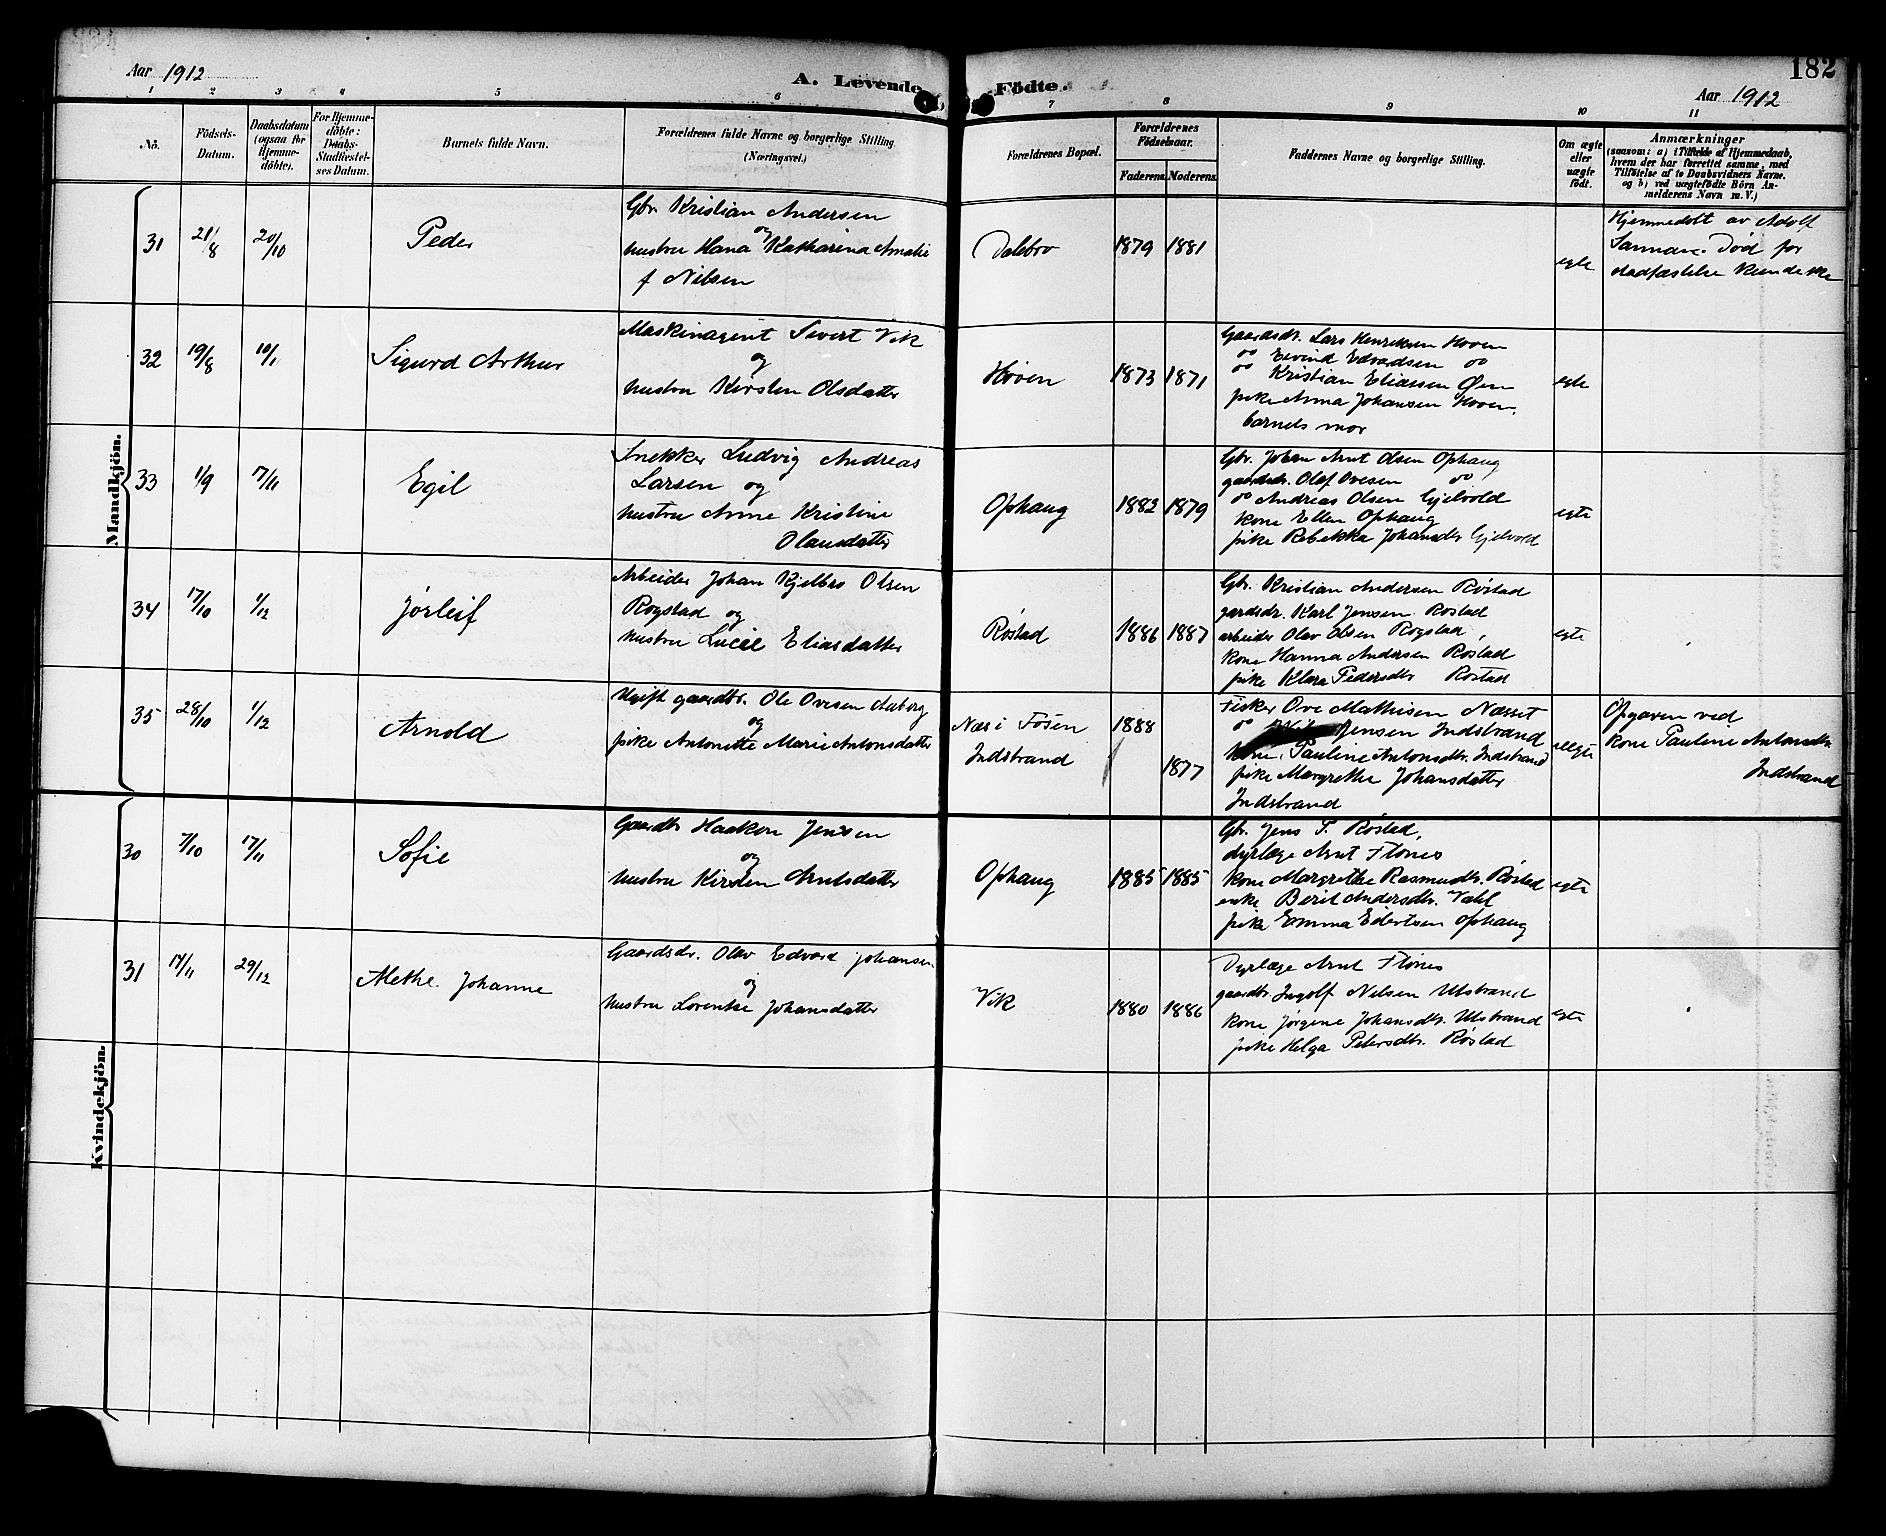 Aar 1912
A. Levende Födte.
182
Aar 1912
1 2 3 4 5 6 7 8 9 10 11
No.
Födsels-
Datum.
Daabsdatum
(ogsaa for
Hjemme-
døbte).
For Hjemme-
døbte:
Daabs-
Stadfæstel-
ses Datum.
Barnets fulde Navn.
Forældrenes fulde Navne og borgerlige Stilling
(Næringsvei.)
Forældrenes Bopæl.
Forældrenes
Fødselsaar.
Faderens. Moderens.
Faddernes Navne og borgerlige Stilling.
Om ægte
eller
uægte
født.
Anmærkninger
(saasom: a) i Tilfælde af Hjemmedaab,
hvem der har forrettet samme, med
Tilføielse af to Daabsvidners Navne.
og b) ved uægtefødte Börn An-
melderens Navn m. V.)
Mandkjön.
31
21/8
20/10
Peder
Gbr. Kristian Andersen
og
hustru Hana Katharina Amalie
f Nilsen
Dalebro
1879
1881
egte
Hjemmedøbt av Adolf
Død før
stadfæstelse kunde ske
32
19/8
10/11
Sigurd Arthur
Maskinagent Sivert Vik
og
hustru Kirsten Olsdatter
Hoven
1873
1871
Gaardbr. Lars Henriksen Hoven
do Eivind Edvardsen do
do Kristian Eliassen Øien
pike Anna Johansen Hoven,
barnets mor
egte
33
1/9
17/11
Egil
Snekker Ludvig Andreas
Larsen og
hustru Anne Kristine
Olausdatter
Ophaug
1882
1879
Gbr. Johan Arnt Olsen Ophaug
gaardbr. Olaf Ovesen do
do Andreas Olsen Gjelvold
kone Ellen Ophaug
pike Rebekka Johansdtr Gjelvold
egte
34
17/10
1/12
Jørleif
Arbeider Johan Kjelbro Olsen
Rogstad og
hustru Lucie Eliasdatter
Røstad
1886
1887
Gbr. Kristian Andersen Røstad
gardsbr. Karl Jensen Røstad
arbeider Olav Olsen Rogstad,
kone Hanna Andersen Røstad
pike Klara Pedersdtr Røstad
egte
35
28/10
1/12
Arnold
Ugift gaardbr. Ole Ovesen Aaborg
og
pike Antonette Marie Antonsdatter
Nes i Fosen
Indstrand
1888
1877
Fisker Ove Mathisen Nesset
do Jensen Indstrand
kone Pauline Antonsdtr. Indstrand
pike Margrethe Johansdatter
Indstrand
uegte
Opgaven ved
kone Pauline Antonsdtr
Indstrand
Kvindekjön.
30
7/10
17/11
Sofie
Gaardbr Haakon Jensen
og
hustru Kirsten Arntsdatter
Ophaug
1885
1885
Gbr. Jens P. Røstad,
dyrlæge Arnt Flønes
kone Margrethe Rasmusdtr. Røstad
enke Berit Andersdtr. Vahl
pike Emma Edertsen Ophaug
egte
31
17/11
29/12
Methe Johanne
Gaardsbr. Olav Edvard Johansen
og
hustru Lorentse Johansdatter
Vik
1880
1886
Dyrlæge Arnt Flønes
gaardbr. Ingolf Nilsen Ulstrand
kone Jørgine Johansdtr. Ulstrand
pike Helga Petersdtr. Røstad
egte